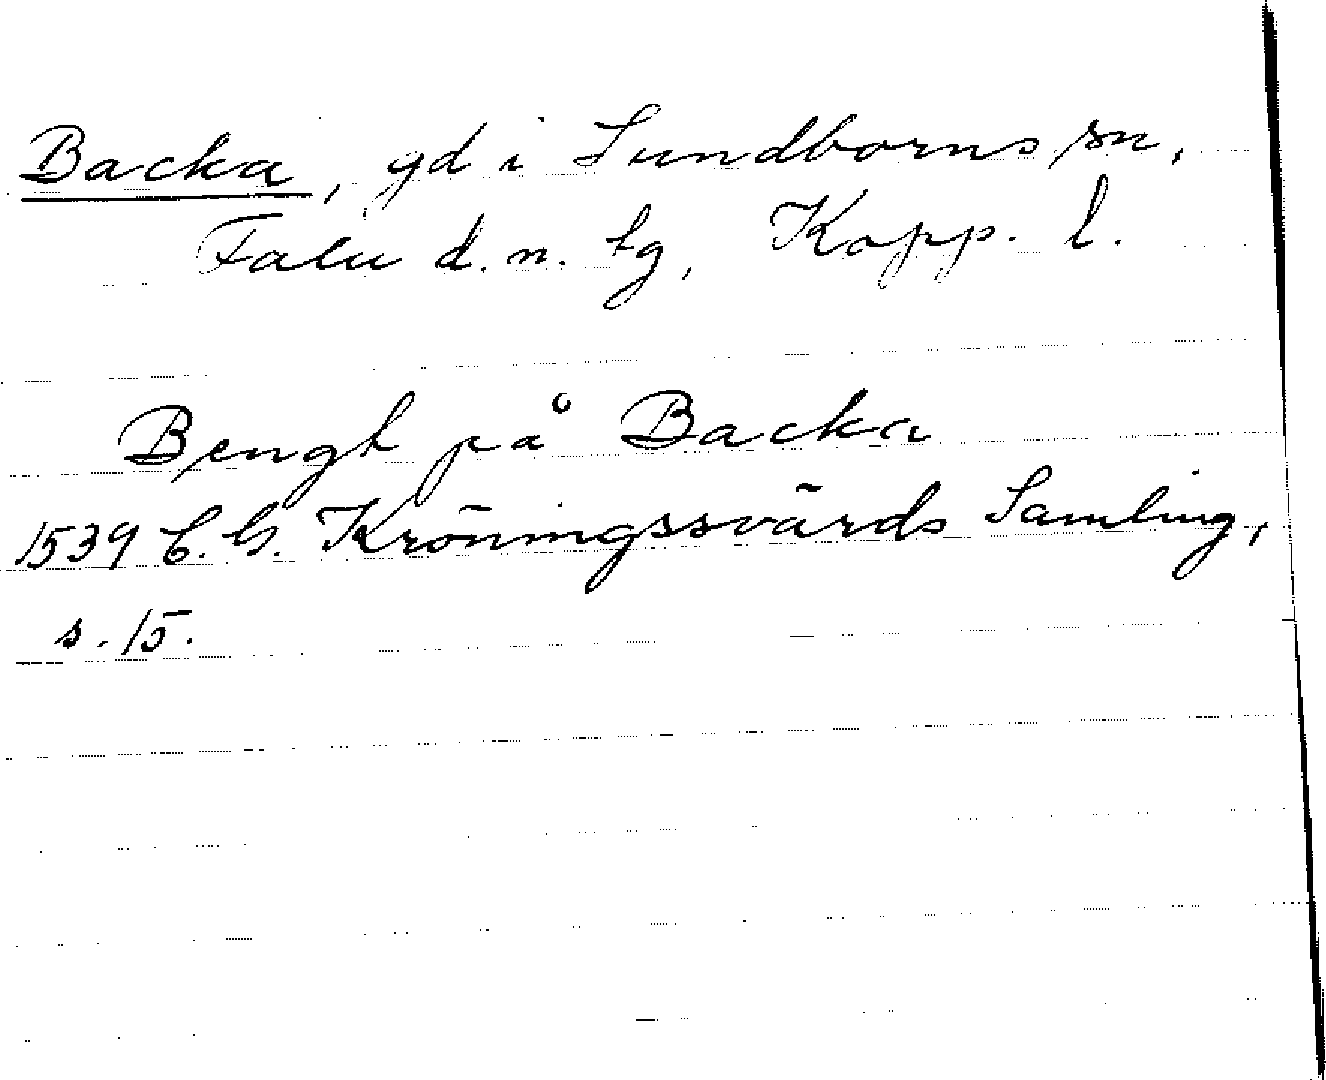 Backa, gd i Sundborns sn,
Falu d. n. tg, Kopp. l.
Bengt på Backa
1539 C. G. Kröningssvärds Samling,
s. 15.